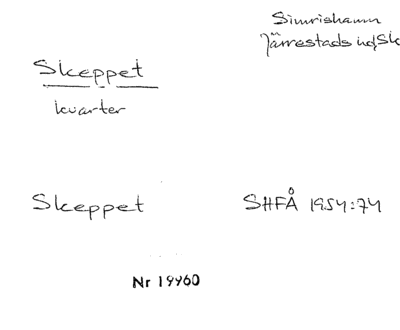 Simrishamn
Järrestads hd, Sk
Skeppet
kvarter
Skeppet SHFÅ 1954:74
Nr 19960